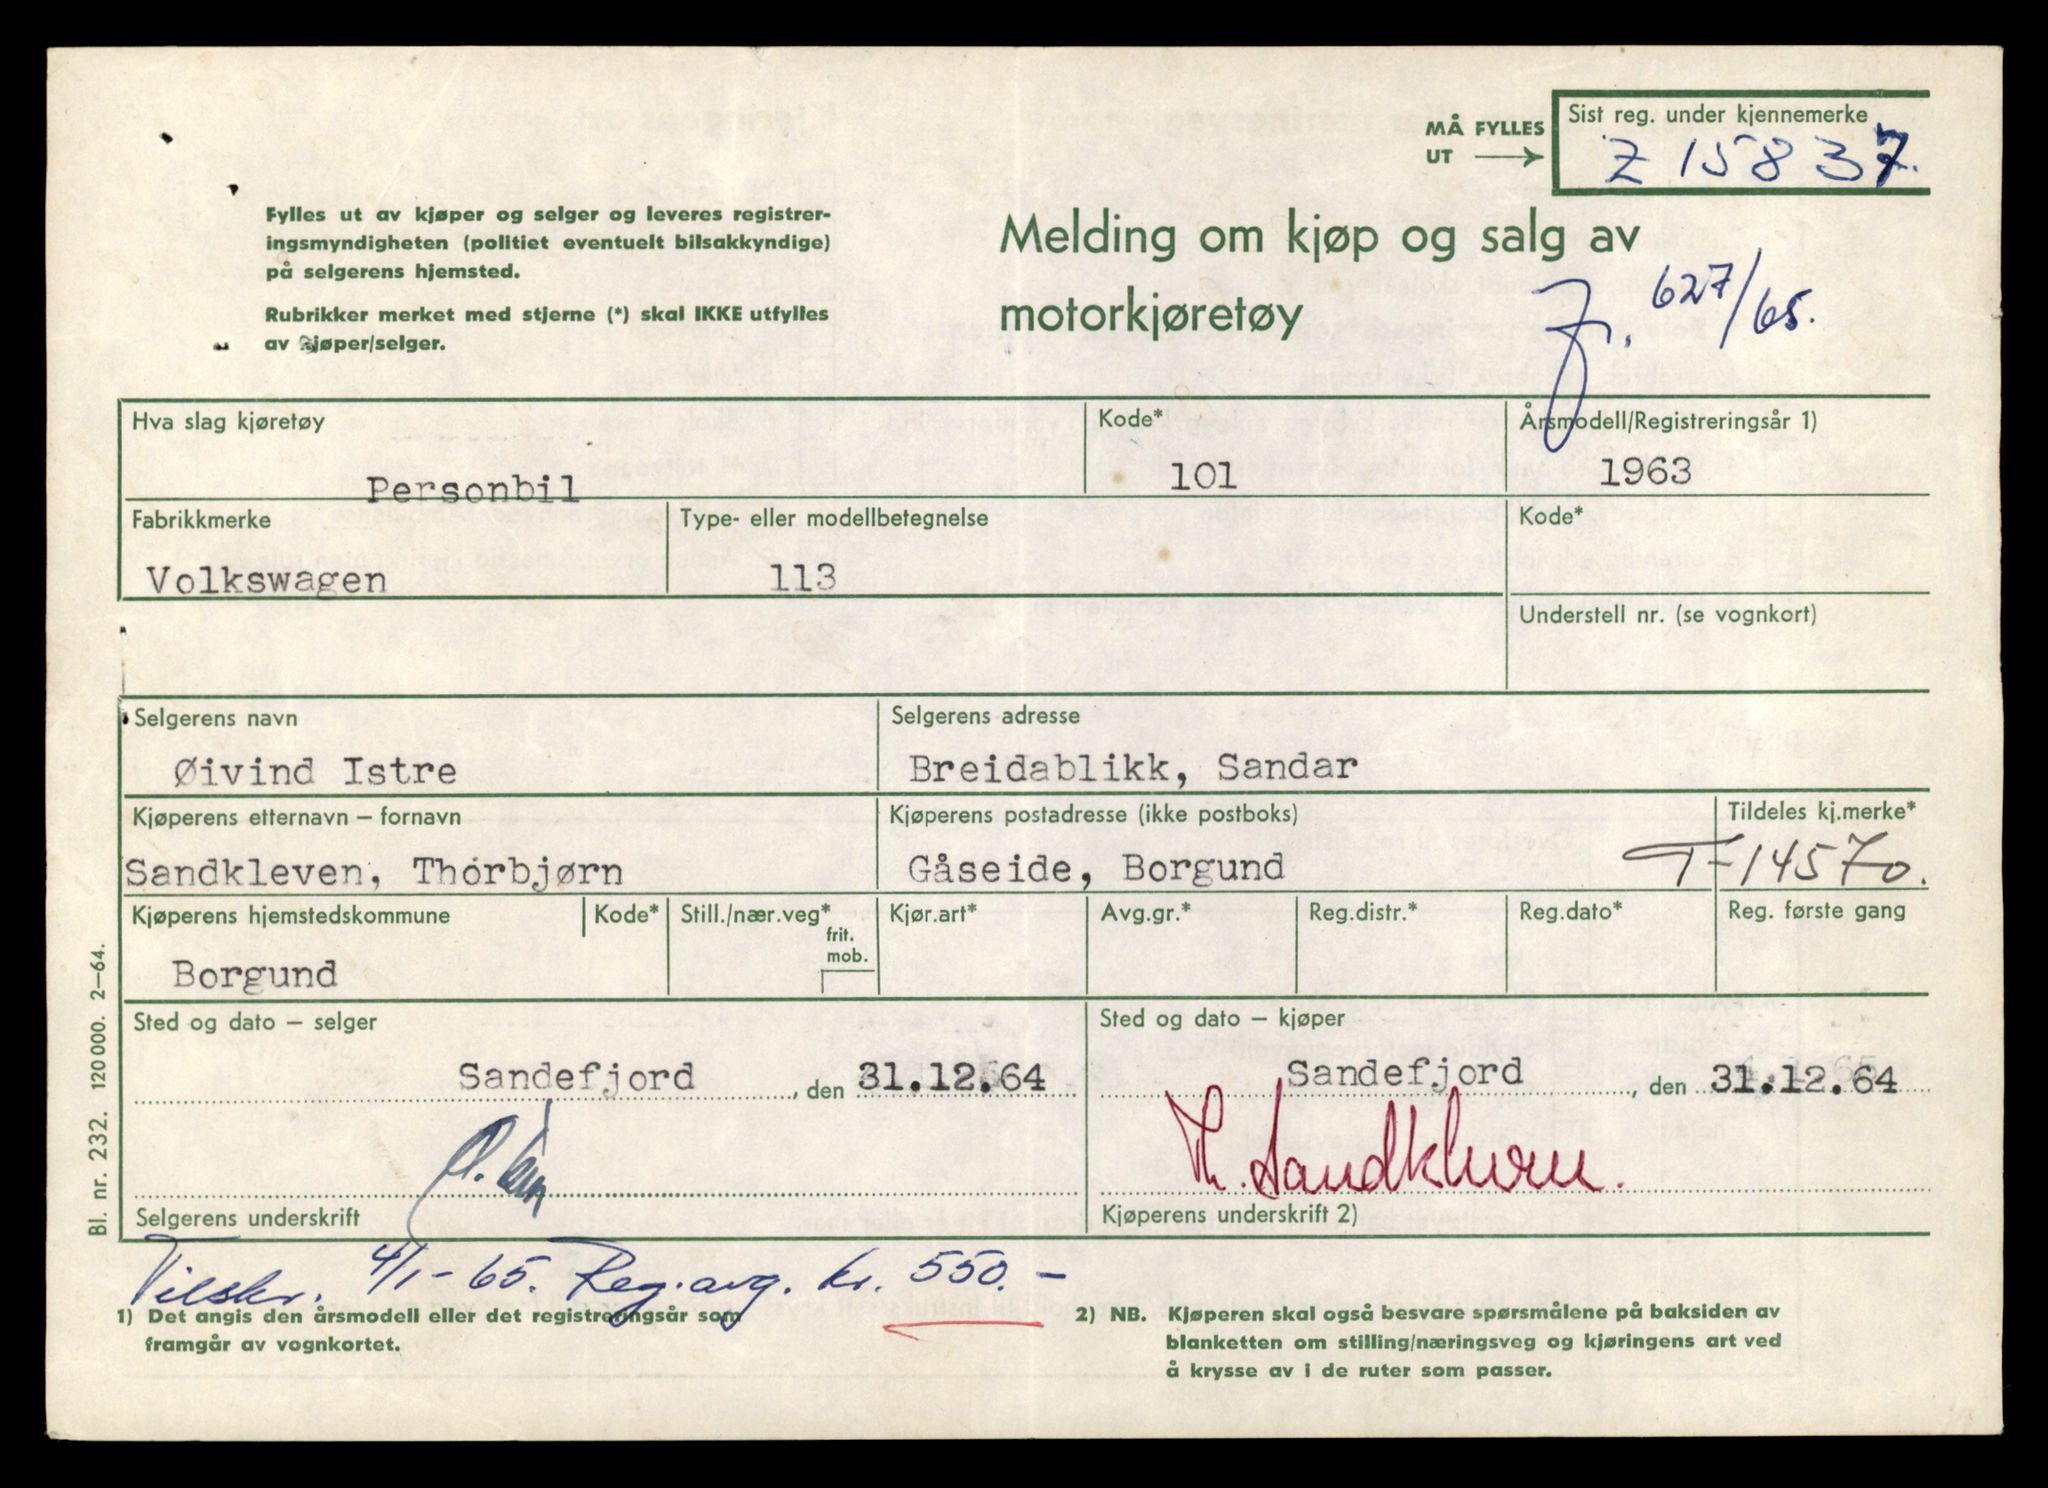 MÅ FYLLES
UT
Sist reg. under kjennemerke
Z 15837.
Fylles ut av kjøper og selger og leveres registrer-
ingsmyndigheten (politiet eventuelt bilsakkyndige)
på selgerens hjemsted.
Rubrikker merket med stjerne (*) skal IKKE utfylles
av kjøper/selger.
Melding om kjøp og salg av
motorkjøretøy
627/65.
Hva slag kjøretøy
Personbil
Kode*
101
Årsmodell/Registreringsår 1)
1963
Fabrikkmerke
Volkswagen
Type- eller modellbetegnelse
113
Kode*
Understell nr. (se vognkort)
Selgerens navn
Øivind Istre
Selgerens adresse
Breidablikk, Sandar
Kjøperens etternavn – fornavn
Sandkleven, Thorbjørn
Kjøperens postadresse (ikke postboks)
Gåseide, Borgund
Tildeles kj.merke*
T-14570.
Kjøperens hjemstedskommune
Borgund
Kode*
Still./nær.veg*
frit.
mob.
Kjør.art*
Avg.gr.*
Reg.distr.*
Reg.dato*
Reg. første gang
Sted og dato – selger
Sandefjord, den 31.12.64
Sted og dato – kjøper
Sandefjord, den 31.12.64
Th. Sandkleven.
Selgerens underskrift
Kjøperens underskrift 2)
Tilskr. 4/1-65. Reg.avg. kr. 550.-
1) Det angis den årsmodell eller det registreringsår som
framgår av vognkortet.
2) NB. Kjøperen skal også besvare spørsmålene på baksiden av
blanketten om stilling/næringsveg og kjøringens art ved
å krysse av i de ruter som passer.
Bl. nr. 232. 120 000. 2–64.